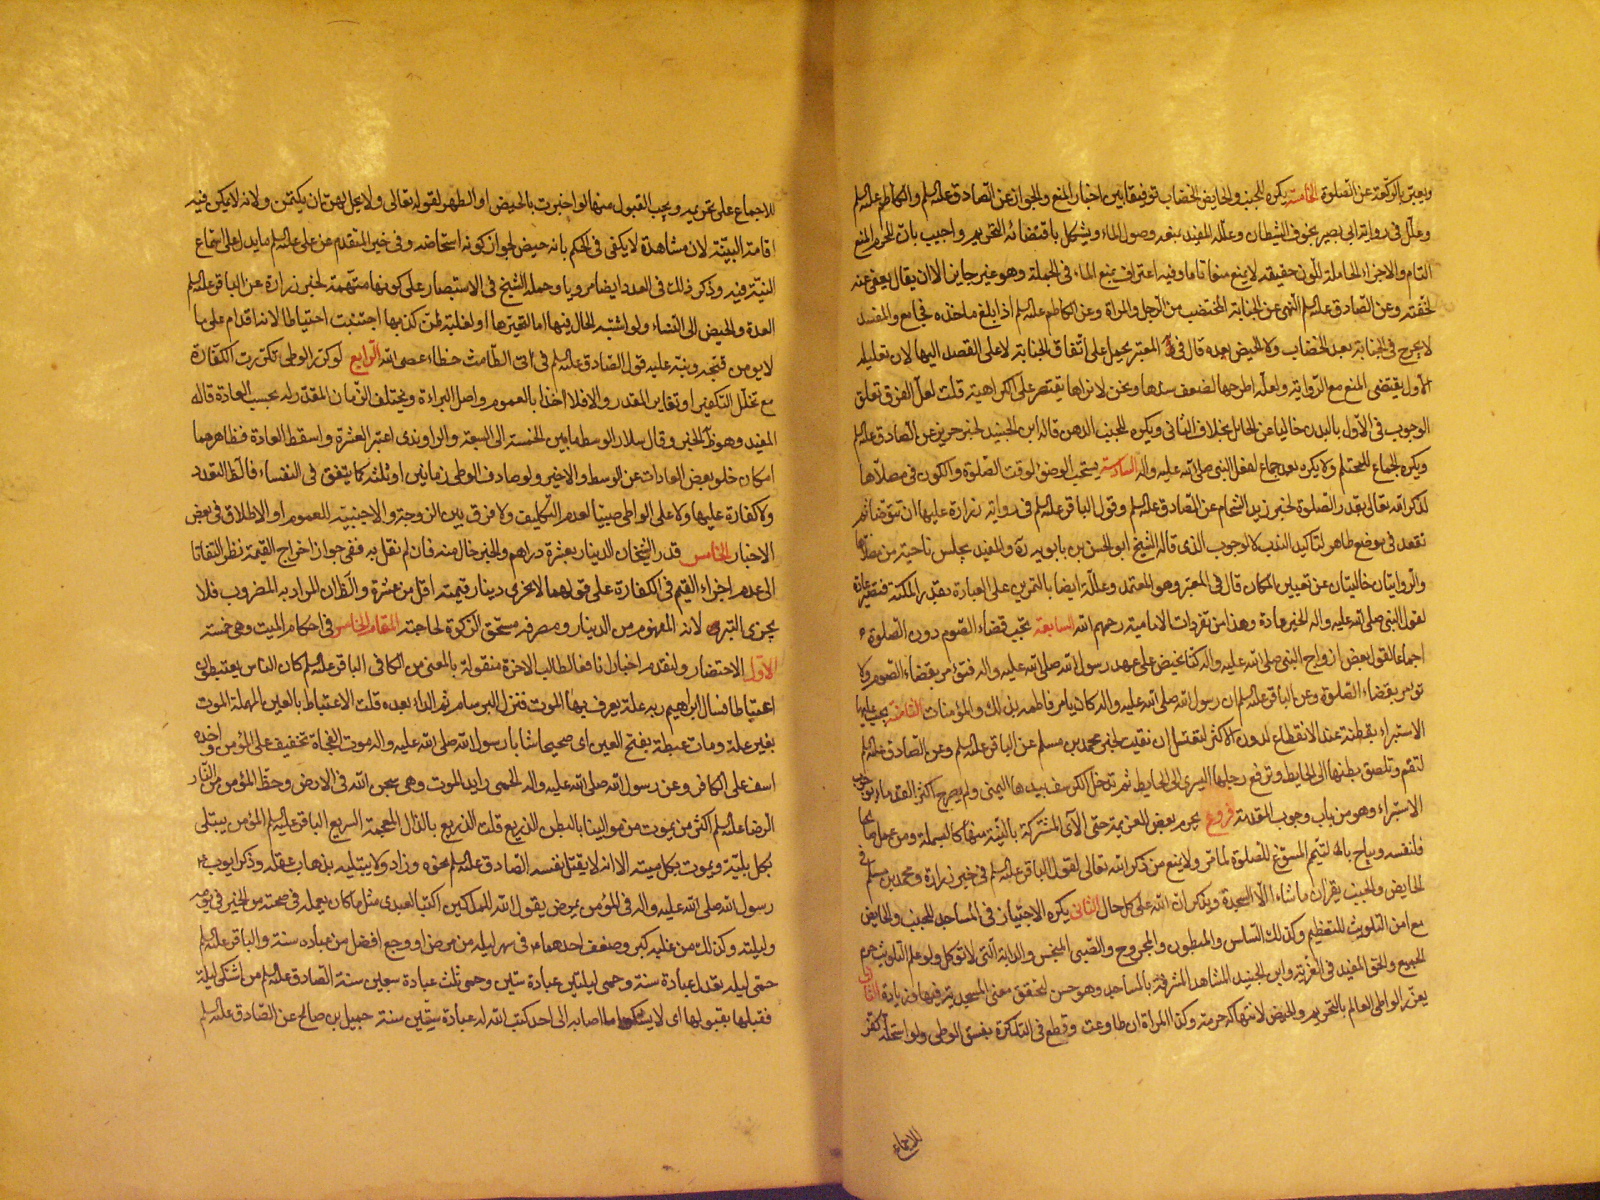 ويعبر بالركعة عن الصلوة الخامسة يكره للجنب والحايض الخضاب توفيقا بين اخبار المنع والجواز عن الصادق عليه السلم والكاظم عليه السلم
وعلل في رواية ابي بصير بخوف الشيطان وعلله المفيد بمنعه وصول الماء ويشكل باقتضائه التحريم واجيب بان المحرم المنع
التام والاجزاء الحاملة للون خفيفة لا يمنع منعا تاما وفيه اعتراف بمنع الماء في الجملة وهو غير جايز الا ان يقال يعفى عنه
لخفته وعن الصادق عليه السلم النهي عن الجنابة للمختضب من الرجل والمراة وعن الكاظم عليه السلم اذا بلغ ماخذه فجامع والمفيد
لا يحرج في الجنابة بعد الخضاب ولا الحيض بعده قال في المعتبر يحمل على اتفاق الجنابة لا على القصد اليها لان تعليله
الاول يقتضي المنع مع الرواية ولعله اطرحها لضعف سندها ونحن لا نراها يقتصر على الكراهية قلت لعل الفرق تعلق
الوجوب في الاول بالبدن خاليا عن الحايل بخلاف الثاني ويكره للجنب الدهن قاله ابن الجنيد لخبر حريز عن الصادق عليه السلم
ويكره الجماع للمحتلم ولا يكره بعد جماع لفعل النبي صلى الله عليه واله السادسة يستحب الوضوء لوقت الصلوة والكون في مصلاها
لذكر الله تعالى بقدر الصلوة لخبر زيد الشحام عن الصادق عليه السلم وقول الباقر عليه السلم في رواية زرارة عليها ان تتوضا ثم
تقعد في موضع طاهر لتاكيد الندب لا الوجوب الذي قاله الشيخ ابو الحسن بن بابويه ره والمفيد يجلس ناحية من مصلاها
والروايتان خاليتان عن تعيين المكان قال في المعتبر وهو المعتمد وعلله ايضا بالتمرين على العبادة بقدر المكنة فتبقى عادة
لقول النبي صلى الله عليه واله الخير عادة وهذا من تفردات الامامية رحمهم الله السابعة يجب قضاء الصوم دون الصلوة
اجماعا لقول بعض ازواج النبي صلى الله عليه واله كنا نحيض على عهد رسول الله صلى الله عليه واله فنؤمر بقضاء الصوم ولا
نؤمر بقضاء الصلوة وعن الباقر عليه السلم ان رسول الله صلى الله عليه واله كان يامر فاطمة بذلك والمؤمنات الثامنة يجب عليها
الاستبراء بقطنة عند الانقطاع لدون الاكثر لتغتسل ان نقيت لخبر محمد بن مسلم عن الباقر عليه السلم وعن الصادق عليه السلم
لتقم وتلصق بطنها الى الحايط وترفع رجلها اليسرى الى الحايط ثم تدخل الكرسف بيدها اليمنى ولم يصرح اكثر القدماء بوجوب
الاستبراء وهو من باب وجوب المقدمة فروع يحرم بعض العزيمة حتى الآي المشتركة بالنية منها كالبسملة ومن عمل صالحا
فلنفسه ويباح بالتيمم المسوغ للصلوة لما مر ولا يمنع من ذكر الله تعالى لقول الباقر عليه السلم في خبر زرارة ومحمد بن مسلم في
الحايض والجنب يقران ما شاء الا السجدة ويذكران الله على كل حال الثاني يكره الاجتياز في المساجد للجنب والحايض
مع امن التلويث للتعظيم وكذلك السلس والمبطون والمجروح والصبي المنجس والدابة التي لا تؤكل ولو علم التلويث حرم
الجميع والحق المفيد في الغرية وابن الجنيد المشاهد المشرفة بالمساجد وهو حسن لتحقق معنى المسجدية فيها وزيادة الثالث
يعزر الواطي العالم بالتحريم والحيض لانتهاكه حرمته وكذا المراة ان طاوعت وقطع في التذكرة بفسق الواطي ولو استحله كفر
للاجماع
للاجماع على تحريمه ويجب القبول منها لو اخبرت بالحيض او الطهر لقوله تعالى ولا يحل لهن ان يكتمن ولانه لا يمكن فيه
اقامة البينة لان مشاهدة لا يكفي في الحكم بانه حيض لجواز كونه استحاضة وفي خبر المتقدم عن علي عليه السلم ما يدل على سماع
البينة فيه وذكر ذلك في العدد ايضا مرويا وحمله الشيخ في الاستبصار على كونها متهمة لخبر زرارة عن الباقر عليه السلم
العدة والحيض الى النساء ولو اشتبه الحال فيها اما لتحيرها او لغلبة ظن كذبها اجتنبت احتياطا لانه اقدام على ما
لا يومن قبحه ونبه عليه قول الصادق عليه السلم في اتى الطامث خطاء عصى الله الرابع لو كرر الوطي تكررت الكفارة
مع تخلل التكفير او تغاير المقدر والا فلا اخذا بالعموم واصل البراءة ويختلف الزمان المقدر له بحسب العادة قاله
المفيد وهو ظ الخبر وقال سلار الوسط ما بين الخمسة الى السبعة والراوندي اعتبر العشرة واسقط العادة فظاهرهما
امكان خلو بعض العادات عن الوسط والاخير ولو صادف الوطي زمانين او ثلثة كما يتفق في النفساء فالظ التعدد
ولا كفارة عليها ولا على الواطي صبيا لعدم التكليف ولا فرق بين الزوجة والاجنبية للعموم او الاطلاق في بعض
الاخبار الخامس قدر الشيخان الدينار بعشرة دراهم والخبر خال منه فان لم نقل به ففي جواز اخراج القيمة نظر التفاتا
الى عدم اجزاء القيم في الكفارة على قولهما لا يجزى دينار قيمته اقل من عشرة والظ ان المراد به المضروب فلا
يجزى التبر لانه المفهوم من الدينار ومصرفه مستحق الزكوة لحاجته المقام الخامس في احكام الميت وهي خمسة
الاول الاحتضار ولنقدم اخبارا نافعا لطالب الاخرة منقولة بالمعنى من الكافي الباقر عليه السلم كان الناس يعتبطون
اعتباطا فسال ابراهيم ربه علة يعرف بها الموت فنزل البرسام ثم الداء بعده قلت الاعتباط بالعين المهملة الموت
بغير علة ومات عبطة بفتح العين اي صحيحا شابا رسول الله صلى الله عليه واله موت الفجأة تخفيف على المؤمن واخذه
اسف على الكافر وعن رسول الله صلى الله عليه واله الحمى رايد الموت وهي سجن الله في الارض وحظ المؤمن من النار
الرضا عليه السلم اكثر من يموت من موالينا بالبطن الذريع قلت الذريع بالذال المعجمة السريع الباقر عليه السلم المؤمن يبتلى
بكل بلية ويموت بكل ميتة الا انه لا يقتل نفسه الصادق عليه السلم نحوه وزاد ولا يبتليه بذهاب عقله وذكر ايوب
رسول الله صلى الله عليه واله في المؤمن يمرض يقول الله للملكين اكتبا لعبدي مثل ما كان يعمله في صحته من الخير في يومه
وليلته وكذلك من غلبه كبر وضعف احدهما في سهر ليلة من مرض او وجع افضل من عبادة سنة والباقر عليه السلم
حمى ليلة تعدل عبادة سنة وحمى ليلتين عبادة سنتين وحمى ثلث عبادة سبعين سنة الصادق عليه السلم من اشتكى ليلة
فقبلها بقبولها اي لا يشكو ما اصابه الى احد كتب الله له عبادة ستين سنة جميل بن صالح عن الصادق عليه السلم